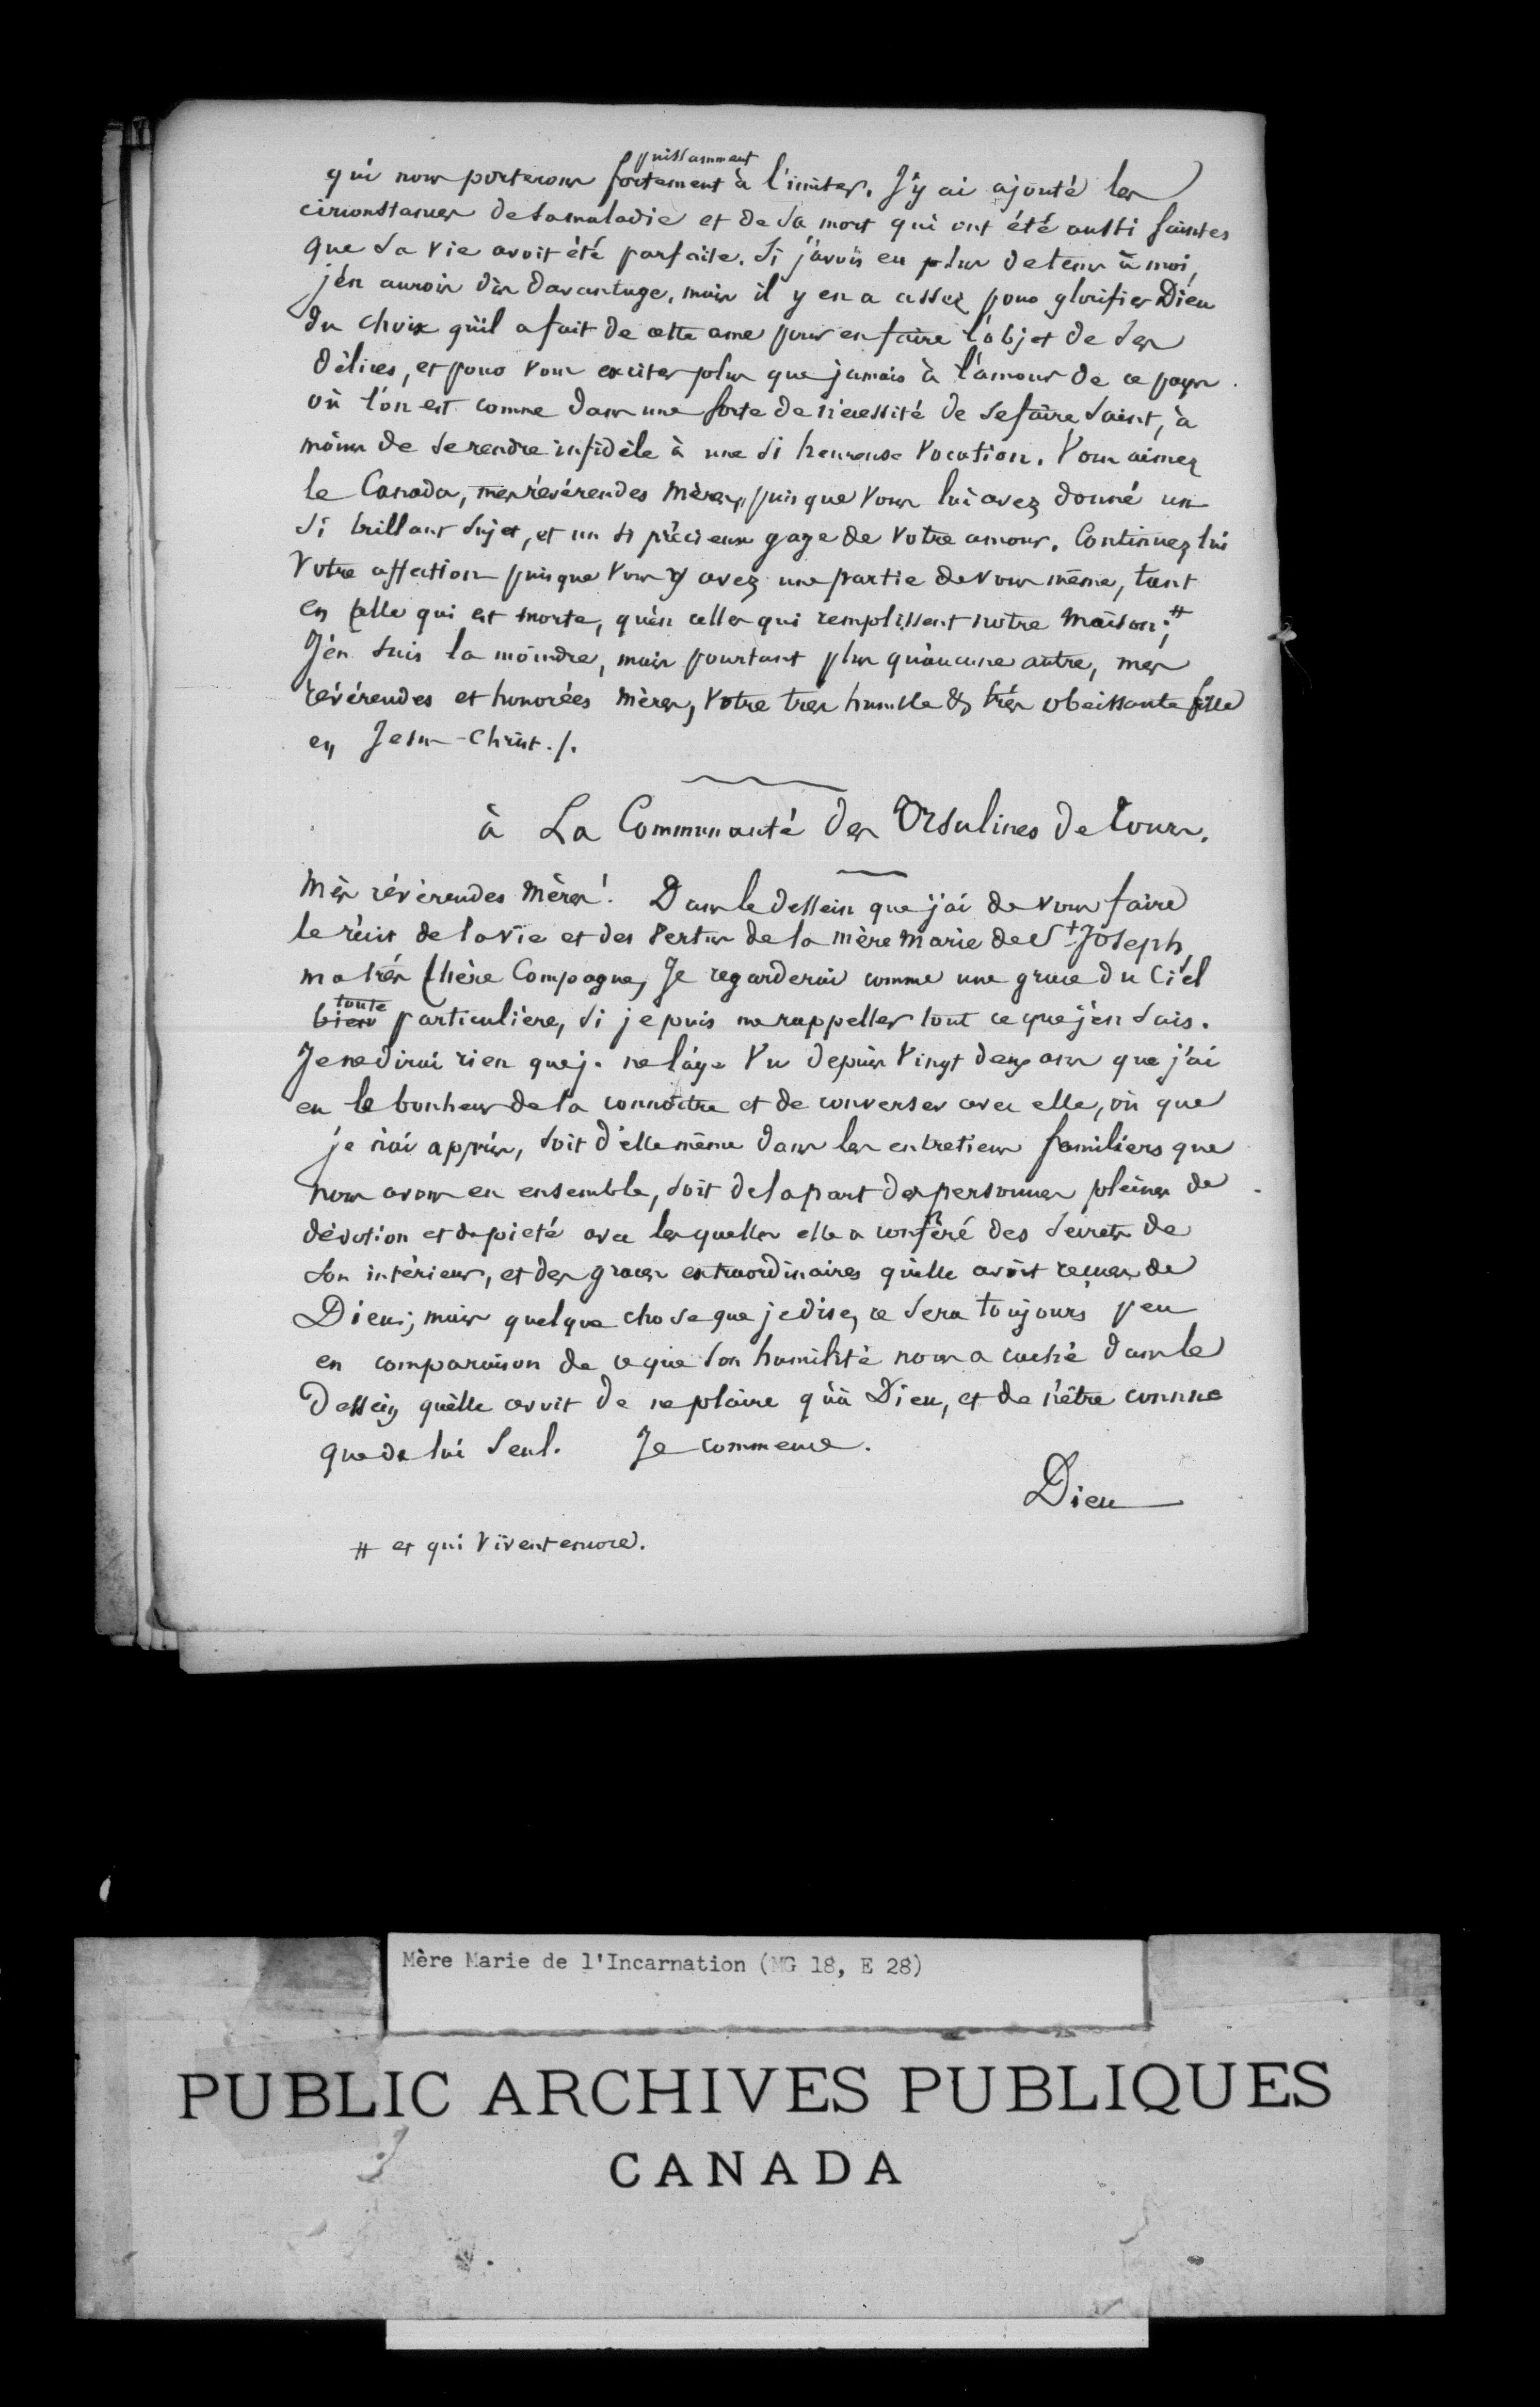 puissamment
qui nous porterons fortement à l'imiter. J'y ai ajouté les
circonstances de sa maladie et de sa mort qui ont été aussi saintes
que sa vie avoit été parfaite. Si j'avois eu plus de tems à moi,
j'en aurois dis davantage, mais il y en a assez pour glorifier Dieu
du choix qu'il a fait de cette ame pour en faire l'objet de ses
délices, et pour vous exciter plus que jamais à l'amour de ce pays
où l'on est comme dans une sorte de nécessité de se faire saint, à
moins de se rendre infidèle à une si heureuse vocation. Vous aimez
le Canada, mes révérendes mères, puisque vous lui avez donné un
si brillant sujet, et un si précieux gage de votre amour. Continuez lui
votre affection puisque vous y avez une partie de vous même, tant
en celle qui est morte, qu'en celles qui remplissent notre maison; #
J'en suis la moindre, mais pourtant plus qu'aucune autre, mes
révérendes et honorées mères, votre très humble & très obeissante fille
en Jesus-Christ ./.
à La Communauté des Ursulines de Tours.
Mes révérendes Mères! Dans le dessein que j'ai de vous faire
le récit de la vie et des vertus de la mère Marie de St Joseph,
ma très chère Compagne, Je regarderai comme une grace du Ciel
toute
bien particulière, si je puis me rappeller tout ce que j'en sais.
Je ne dirai rien que je ne l'aye vu depuis vingt deux ans que j'ai
eu le bonheur de la connoître et de converser avec elle, où que
je n'ai appris, soit d'elle même dans les entretiens familiers que
nous avons eu ensemble, soit de la part des personnes pleines de
dévotion et de pieté avec lesquelles elle a conféré des secrets de
son intérieur, et des graces extraordinaires qu'elle avoit reçues de
Dieu; mais quelque chose que je dise, ce sera toujours peu
en comparaison de ce que son humilité nous a caché dans le
dessein qu'elle avoit de ne plaire qu'à Dieu, et de n'être connue
que de lui seul. Je commence.
Dieu
# et qui vivent encore.
Mère Marie de l'Incarnation (MG 18, E 28)
PUBLIC ARCHIVES PUBLIQUES
CANADA